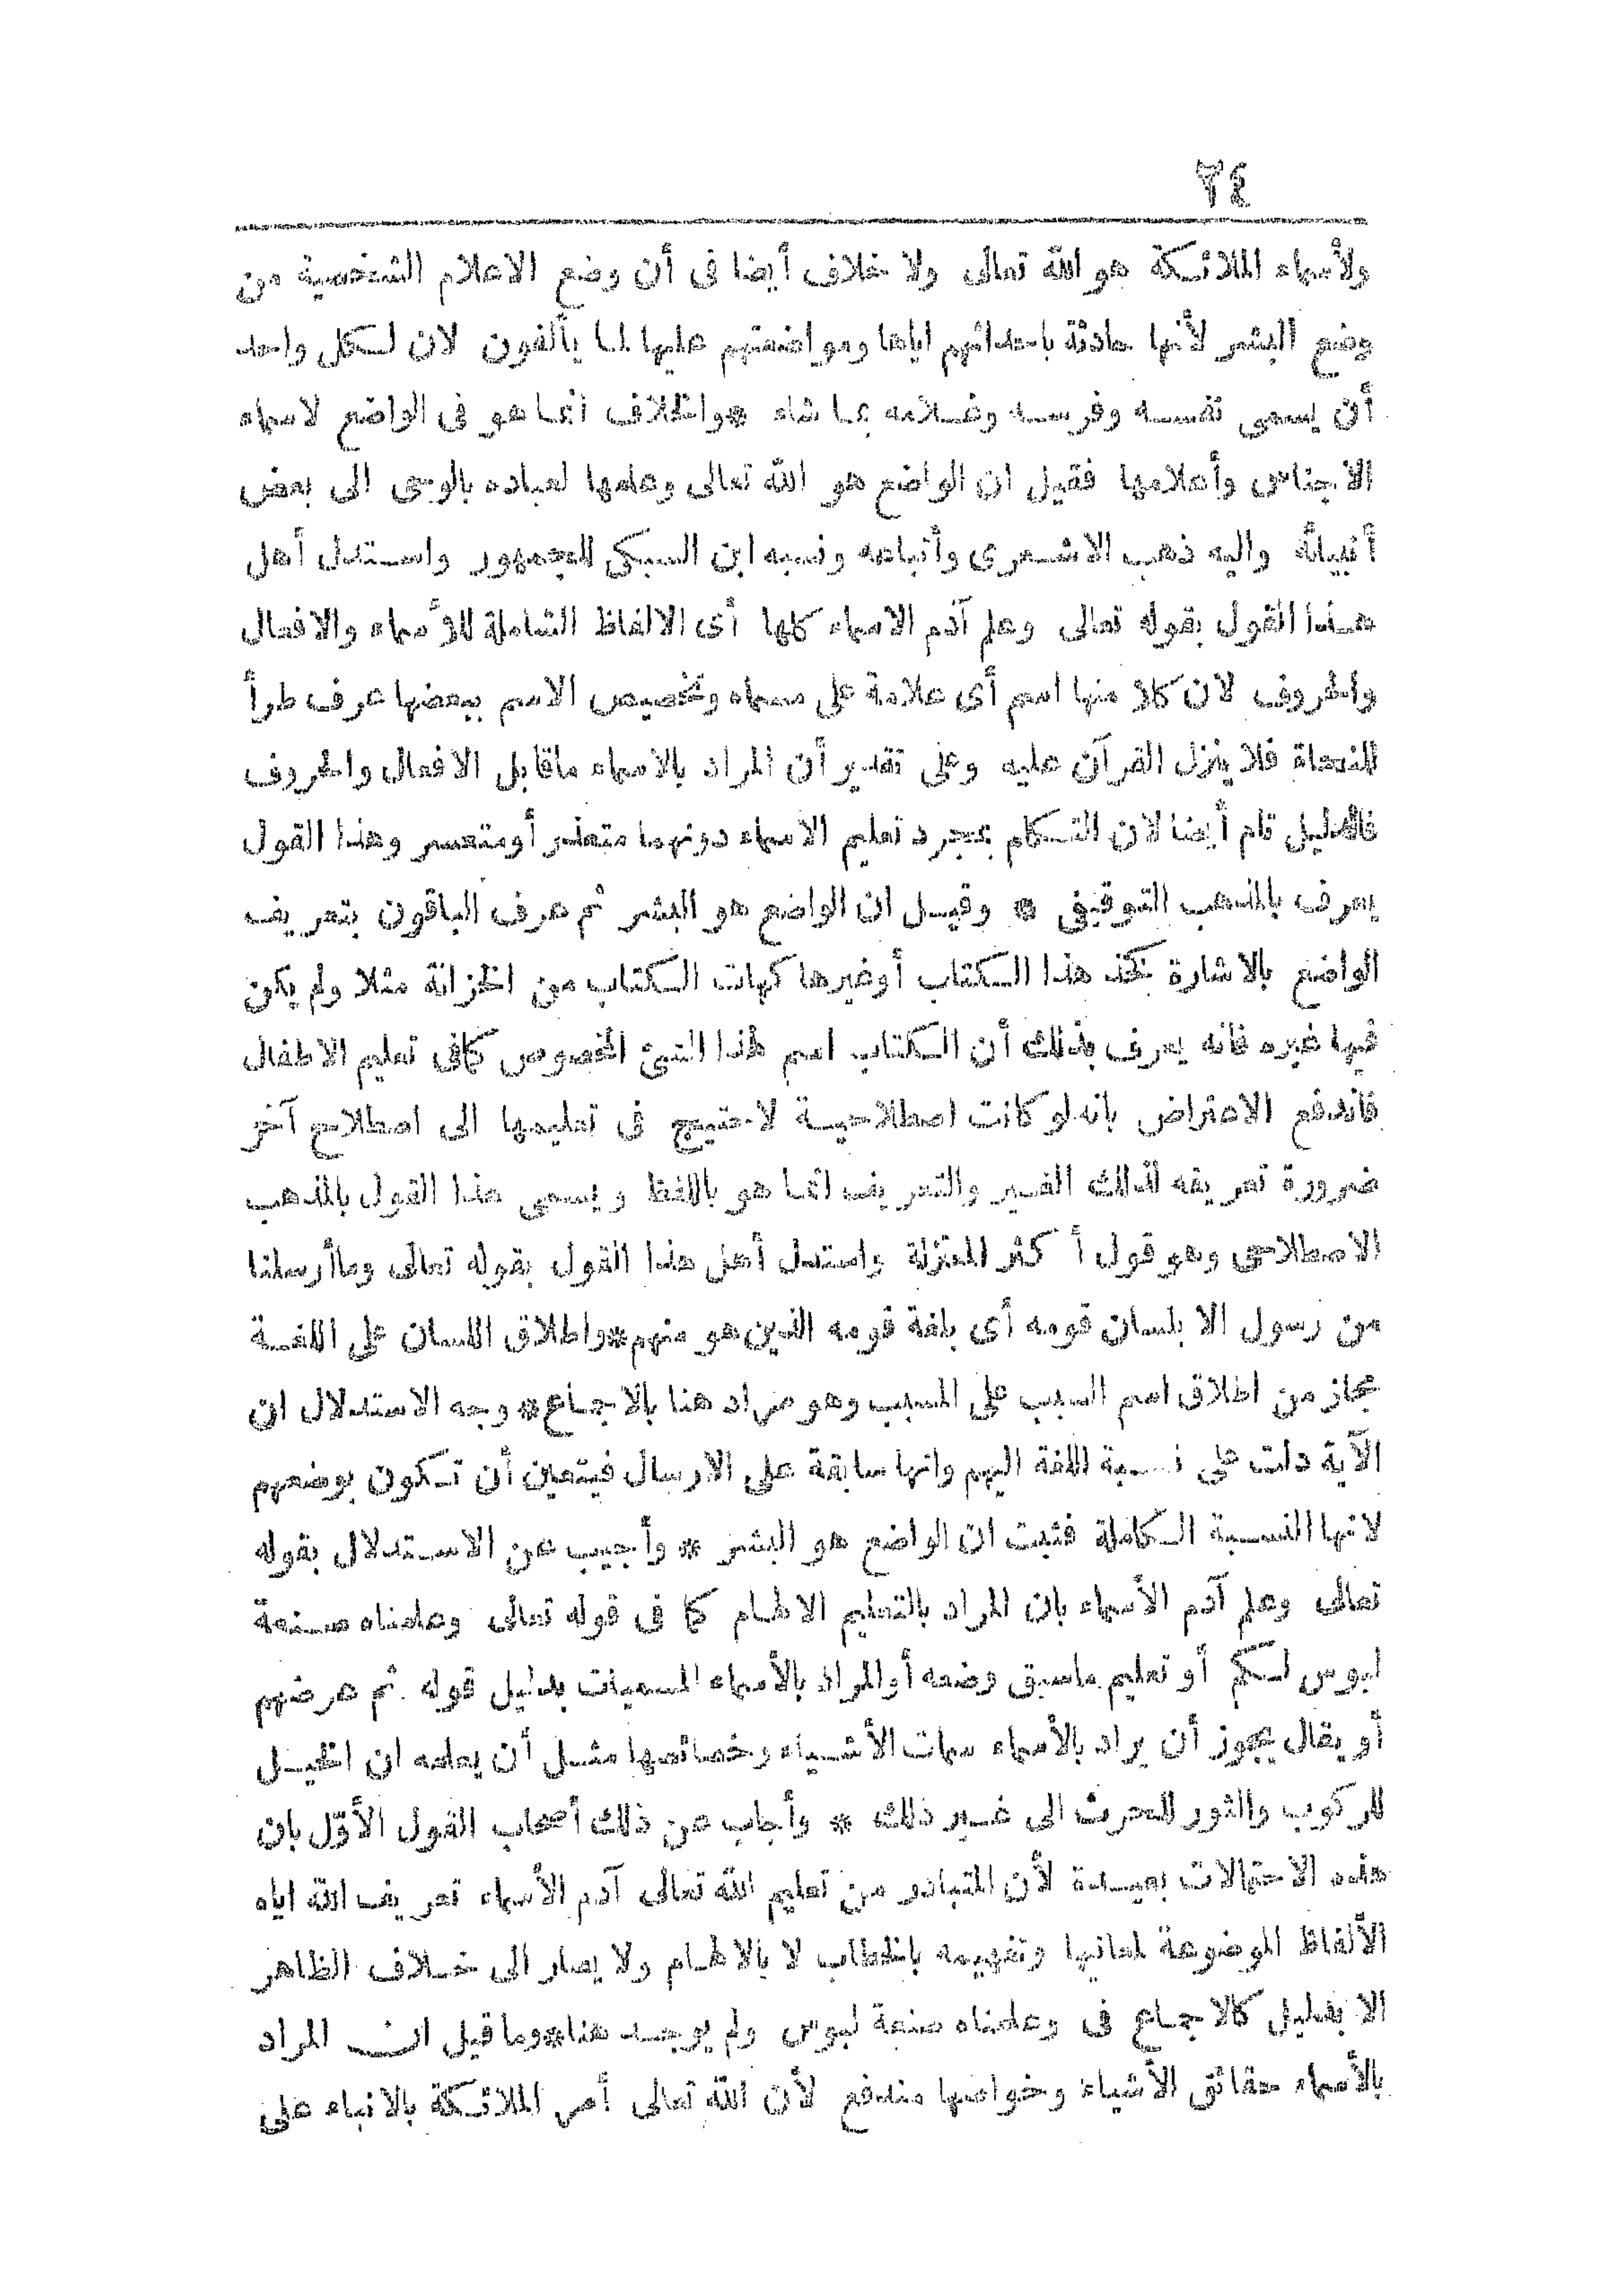 ٣٤
ولأسماء الملائكة هو الله تعالى ولا خلاف أيضا فى أن وضع الاعلام الشخصية من
وضع البشر لأنها حادثة باحداثهم اياها ومواضعتهم عليها لما يألفون لان لكل واحد
أن يسمى نفسه وفرسه وغلامه بما شاء * والخلاف انما هو فى الواضع لاسماء
الاجناس وأعلامها فقيل ان الواضع هو الله تعالى وعلمها لعباده بالوحى الى بعض
أنبيائه واليه ذهب الاشعرى وأتباعه ونسبه ابن السبكى للجمهور واستدل أهل
هذا القول بقوله تعالى وعلم آدم الاسماء كلها أى الالفاظ الشاملة للأسماء والافعال
والحروف لان كلا منها اسم أى علامة على مسماه وتخصيص الاسم ببعضها عرف طرأ
للنحاة فلا ينزل القرآن عليه وعلى تقدير أن المراد بالاسماء ماقابل الافعال والحروف
فالدليل تام أيضا لان التكلم بمجرد تعليم الاسماء دونهما متعذر أو متعسر وهذا القول
يعرف بالمذهب التوقيفى * وقيل ان الواضع هو البشر ثم عرف الباقون بتعريف
الواضع بالاشارة كخذ هذا الكتاب أوغيرها كهات الكتاب من الخزانة مثلا ولم يكن
فيها غيره فانه يعرف بذلك أن الكتاب اسم لهذا الشئ المخصوص كمافى تعليم الاطفال
فاندفع الاعتراض بانه لو كانت اصطلاحية لاحتيج فى تعليمها الى اصطلاح آخر
ضرورة تعريفه لذلك الغير والتعريف انما هو باللفظ ويسمى هذا القول بالمذهب
الاصطلاحى وهو قول أكثر المعتزلة واستدل أهل هذا القول بقوله تعالى وماأرسلنا
من رسول الا بلسان قومه أى بلغة قومه الذين هو منهم * واطلاق اللسان على اللغة
مجاز من اطلاق اسم السبب على المسبب وهو مراد هنا بالاجماع * وجه الاستدلال ان
الآية دلت على نسبة اللغة اليهم وانها سابقة على الارسال فيتعين أن تكون بوضعهم
لانها النسبة الكاملة فثبت ان الواضع هو البشر * وأجيب عن الاستدلال بقوله
تعالى وعلم آدم الأسماء بان المراد بالتعليم الالهام كما فى قوله تعالى وعلمناه صنعة
لبوس لكم أو تعليم ماسبق وضعه أوالمراد بالأسماء المسميات بدليل قوله ثم عرضهم
أو يقال يجوز أن يراد بالأسماء سمات الأشياء وخصائصها مثل أن يعلمه ان الخيل
للركوب والثور للحرث الى غير ذلك * وأجاب عن ذلك أصحاب القول الأول بان
هذه الاحتمالات بعيدة لأن المتبادر من تعليم الله تعالى آدم الأسماء تعريف الله اياه
الألفاظ الموضوعة لمعانيها وتفهيمه بالخطاب لا بالالهام ولا يصار الى خلاف الظاهر
الا بدليل كالاجماع فى وعلمناه صنعة لبوس ولم يوجد هنا * وما قيل ان المراد
بالأسماء حقائق الأشياء وخواصها مندفع لأن الله تعالى أمر الملائكة بالانباء على